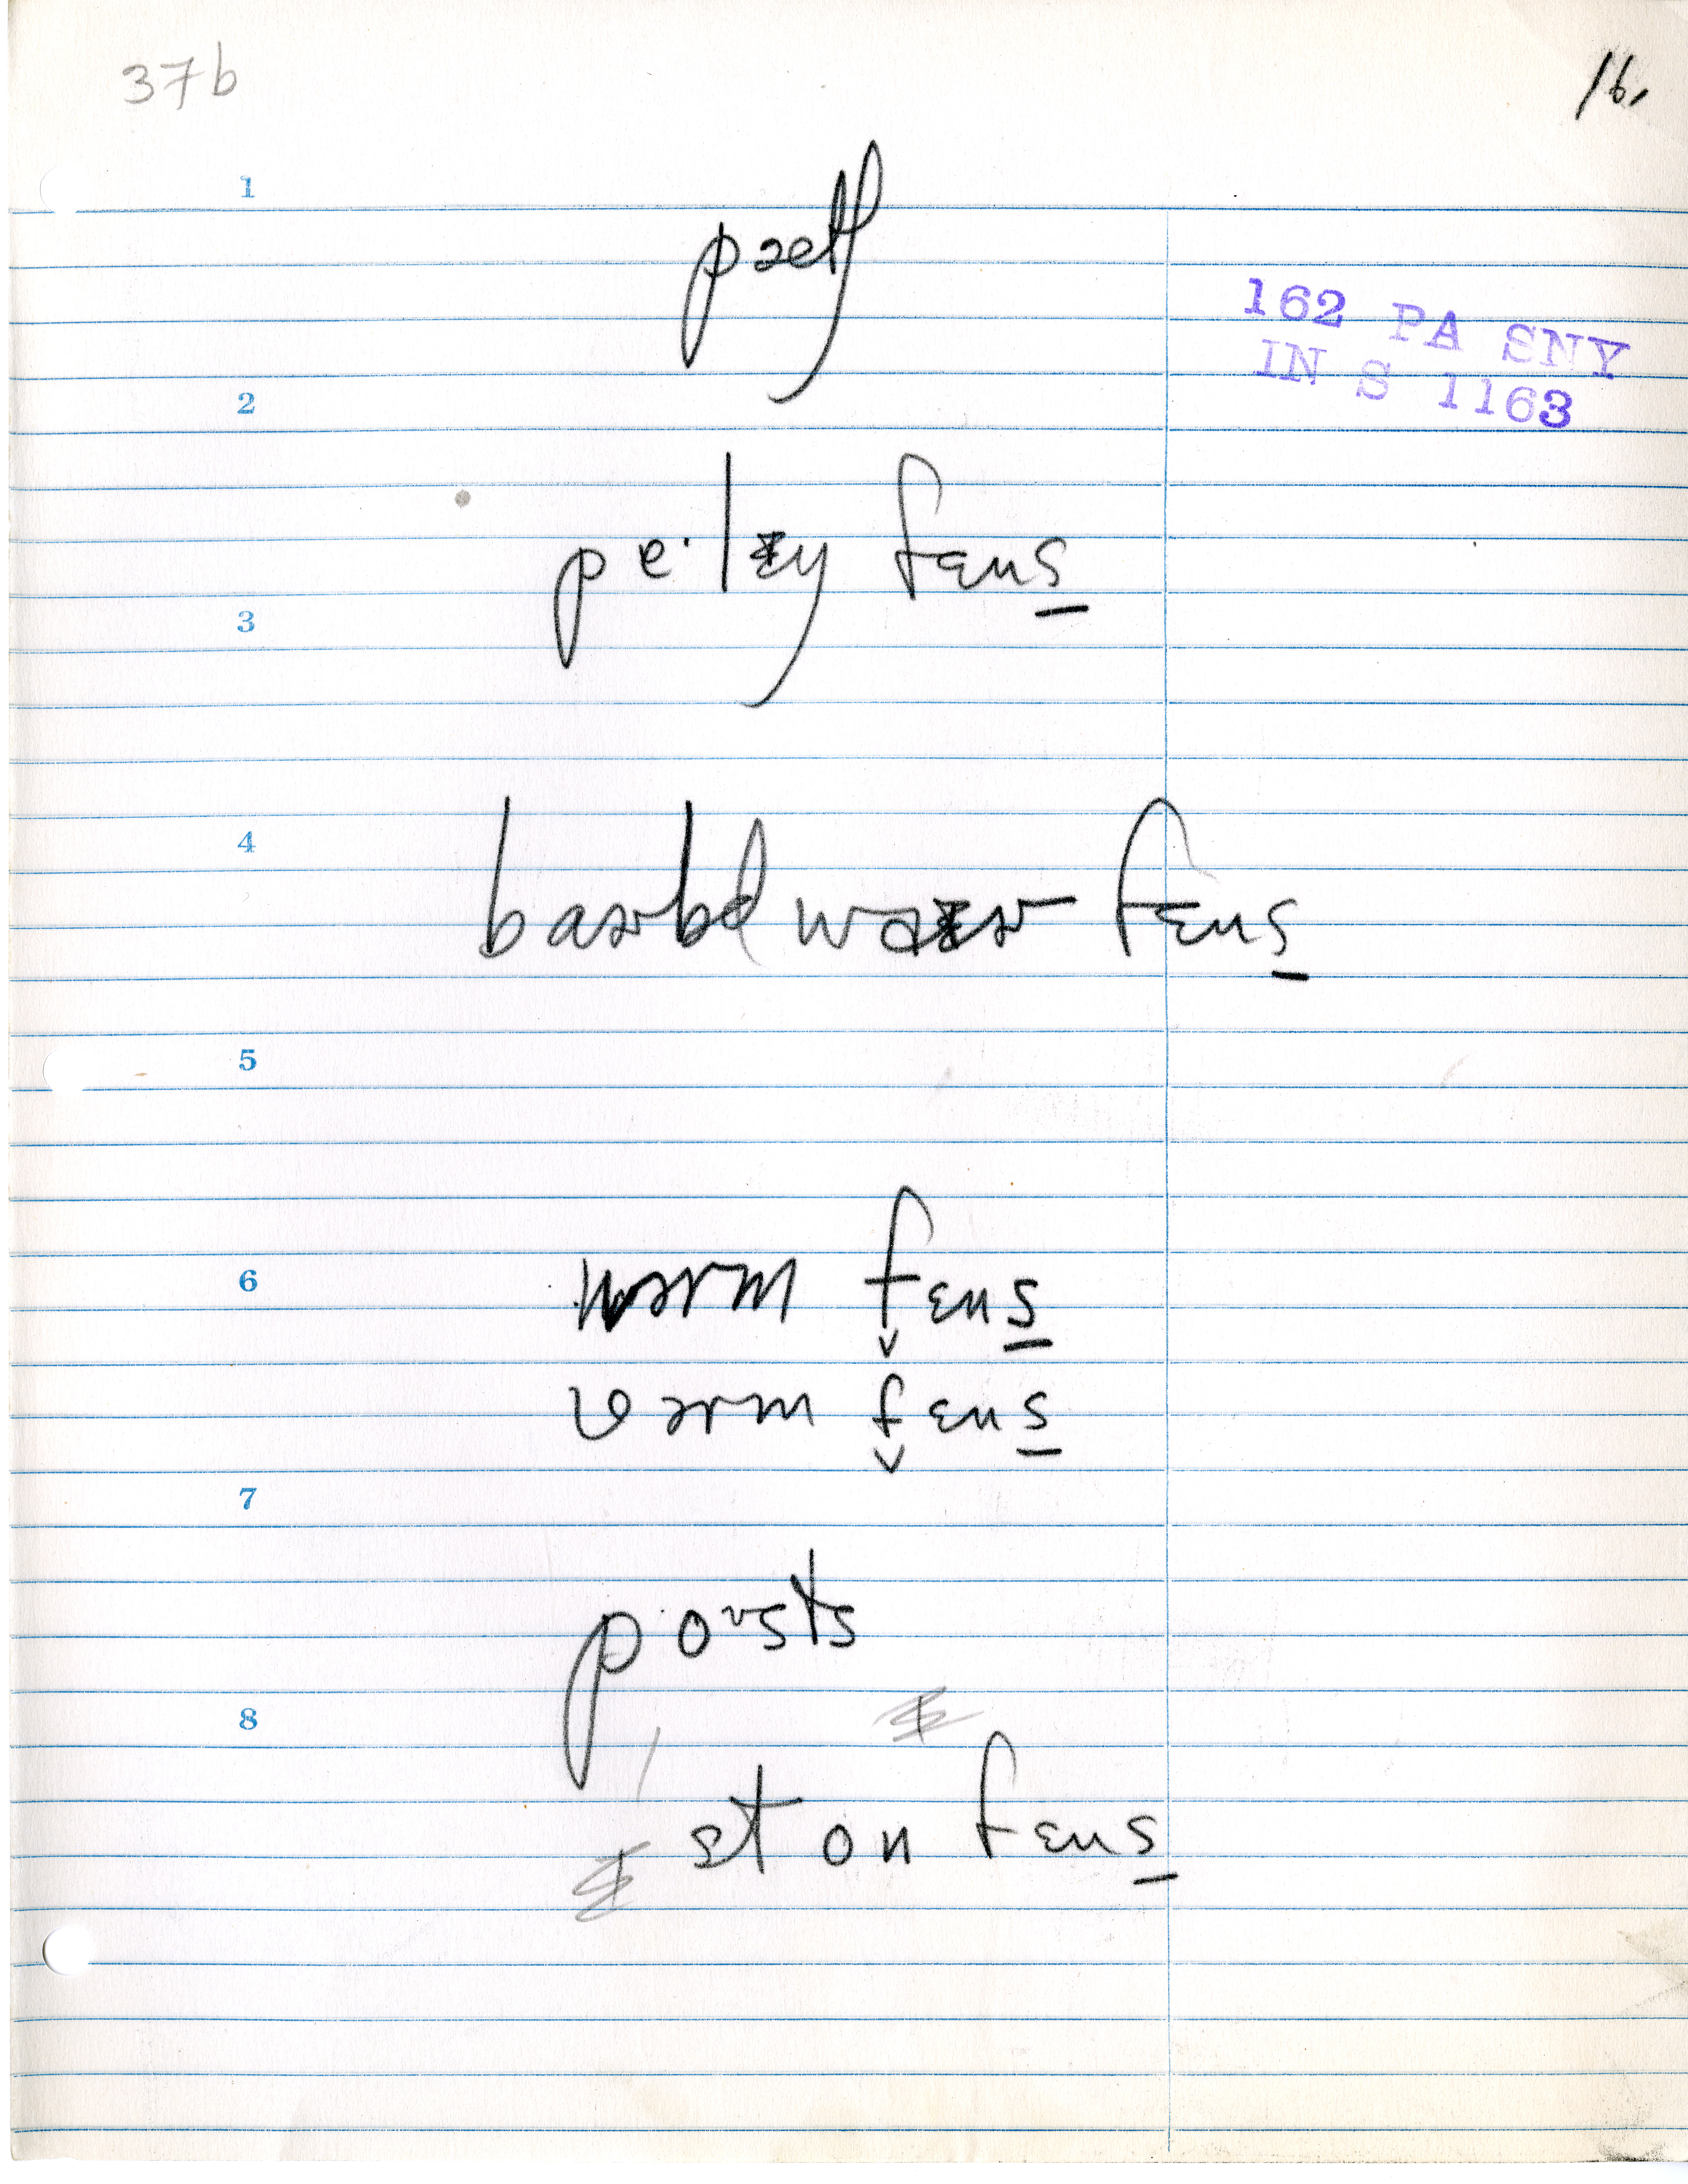 37b
16.
1
pæθ
162 PA SNY
IN S 1163
2
pe·lɪŋ fɛns̲
3
4
barbd waɪər fɛns̲
5
6
wərm fɛns̲
wərm fɛns̲
7
poʊsts
8
ston fɛns̲